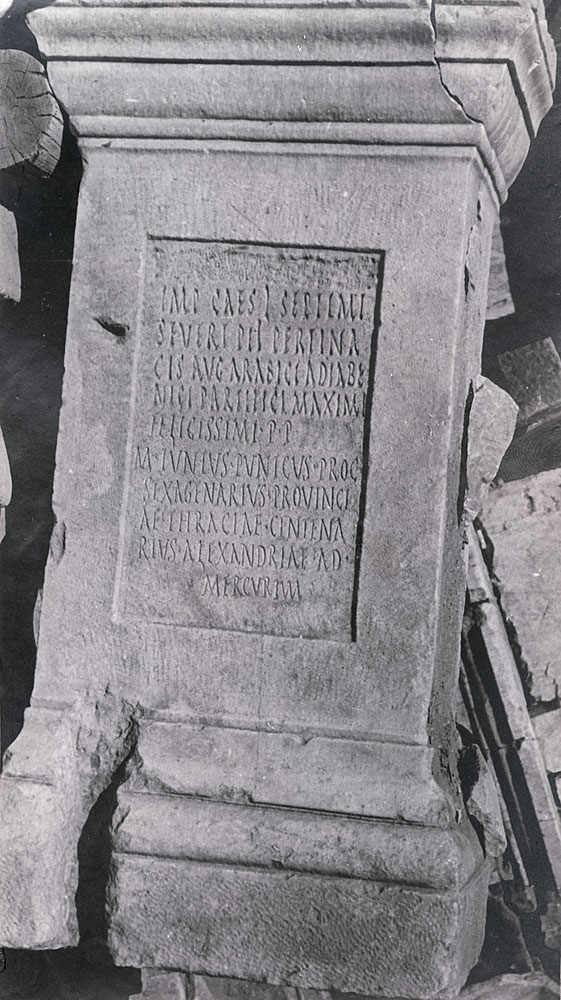 IMP CAES L SEPTIMI
SEVERI PII PERTINA
CIS AVG ARABICI ADIABE
NICI PARTHICI MAXIMI
FELICISSIMI · P P
M · IVNIVS · PVNICVS · PROC
SEXAGENARIVS · PROVINCI
AE · THRACIAE · CENTENA
RIVS · ALEXANDRIAE · AD ·
MERCVRIVM